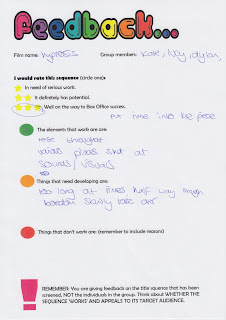 Feedback...
Film name: hypnosis Group members: Kate, Meg, dylan,
I would rate this sequence (circle one):
In need of serious work.
It definitely has potential.
Well on the way to Box Office success.
put more into the
The elements that work are are:
throughout
shot at
sounds/visuals
Things that need developing are:
too long at times half way through
slowly take over
Things that don't work are: (remember to include reasons)
REMEMBER: You are giving feedback on the title sequence that has been
screened, NOT the individuals in the group. Think about WHETHER THE
SEQUENCE 'WORKS' AND APPEALS TO ITS TARGET AUDIENCE.